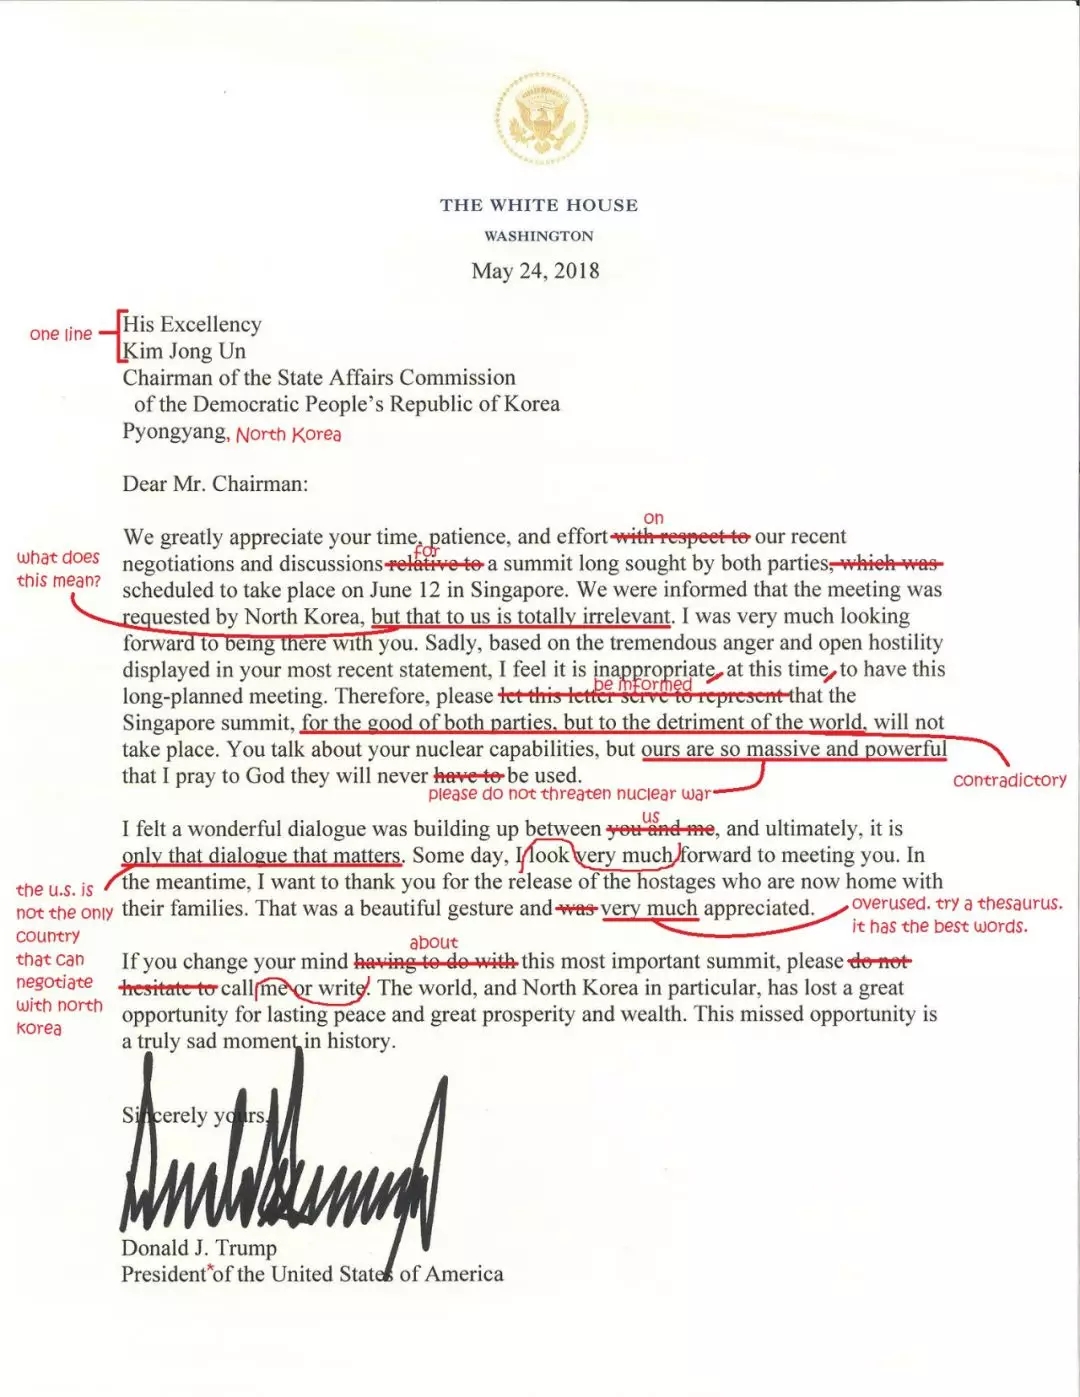 THE WHITE HOUSE
WASHINGTON
May 24, 2018
one line
His Excellency
Kim Jong Un
Chairman of the State Affairs Commission
of the Democratic People's Republic of Korea
Pyongyang, North Korea
Dear Mr. Chairman:
on
We greatly appreciate your time, patience, and effort with respect to our recent
what does
this mean?
for
negotiations and discussions relative to a summit long sought by both parties, which was
scheduled to take place on June 12 in Singapore. We were informed that the meeting was
requested by North Korea, but that to us is totally irrelevant. I was very much looking
forward to being there with you. Sadly, based on the tremendous anger and open hostility
displayed in your most recent statement, I feel it is inappropriate, at this time, to have this
be informed
long-planned meeting. Therefore, please let this letter serve to represent that the
Singapore summit, for the good of both parties, but to the detriment of the world, will not
take place. You talk about your nuclear capabilities, but ours are so massive and powerful
that I pray to God they will never have to be used.
contradictory
please do not threaten nuclear war
us
I felt a wonderful dialogue was building up between you and me, and ultimately, it is
only that dialogue that matters. Some day, I look very much forward to meeting you. In
the meantime, I want to thank you for the release of the hostages who are now home with
their families. That was a beautiful gesture and was very much appreciated.
the u.s. is
not the only
country
that can
negotiate
with north
korea
overused. try a thesaurus.
it has the best words.
about
If you change your mind having to do with this most important summit, please do not
hesitate to call me or write. The world, and North Korea in particular, has lost a great
opportunity for lasting peace and great prosperity and wealth. This missed opportunity is
a truly sad moment in history.
Sincerely yours,
Donald J. Trump
President*of the United States of America